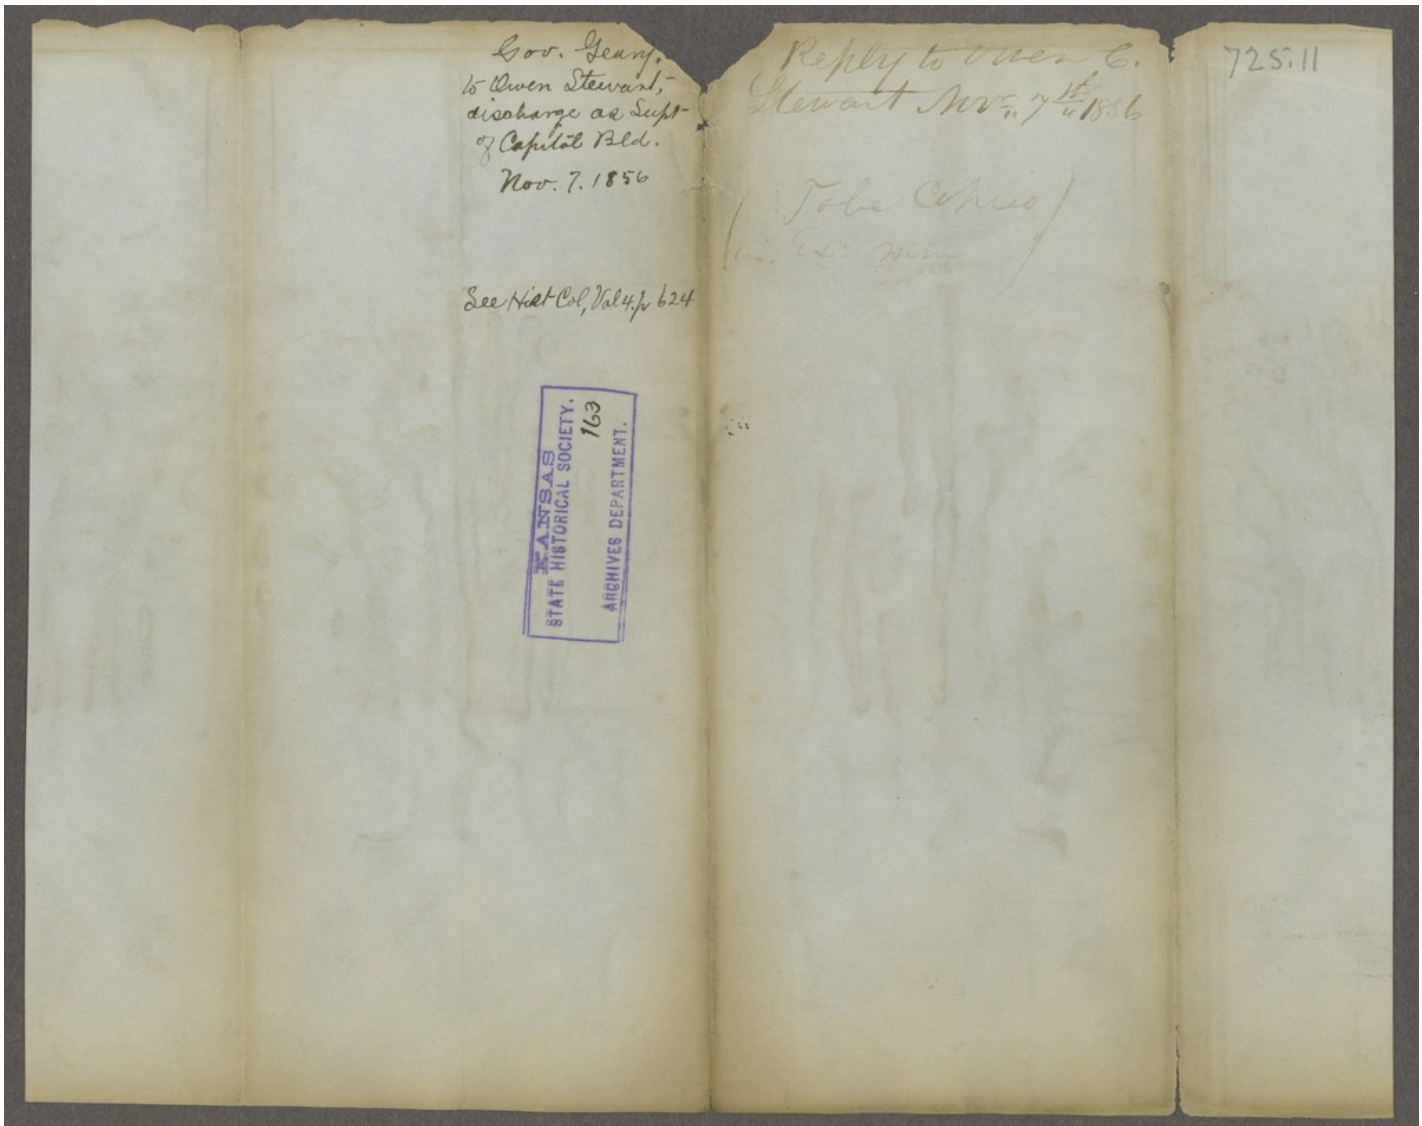 Gov. Geary,
to Owen Stewart,
discharge as Supt
of Capitol Bld.
Nov. 7. 1856
See Hist Col, Vol 4. p 624
KANSAS
STATE HISTORICAL SOCIETY.
163
ARCHIVES DEPARTMENT.
Reply to Owen C.
Stewart Nov 7th 1856
(To be Copied
in Ex: Min)
725.11